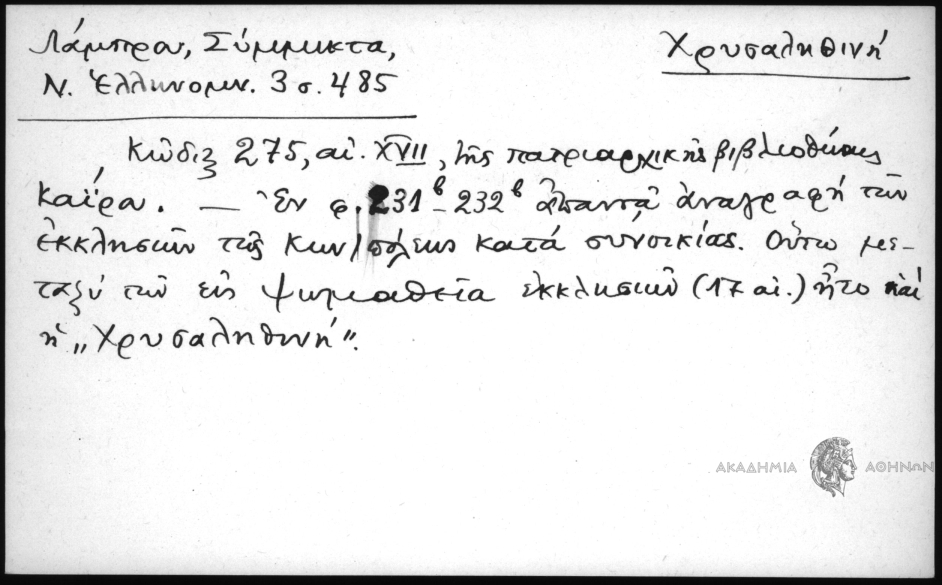 Λάμπρου, Σύμμικτα, Χρυσαληθινή
Ν. Ἑλληνομν. 3 σ. 485
Κώδιξ 275, αἰ. XVII, τῆς πατριαρχικῆς βιβλιοθήκης
Καΐρου. — Ἐν φ. 231β – 232β ἀπαντᾷ ἀναγραφή τῶν
ἐκκλησιῶν τῆς Κων/πόλεως κατά συνοικίας. Οὕτω με-
ταξύ τῶν εἰς Ψωμαθεῖα ἐκκλησιῶν (17 αἰ.) ἦτο καί
ἡ „Χρυσαληθινή".
ΑΚΑΔΗΜΙΑ ΑΘΗΝΩΝ